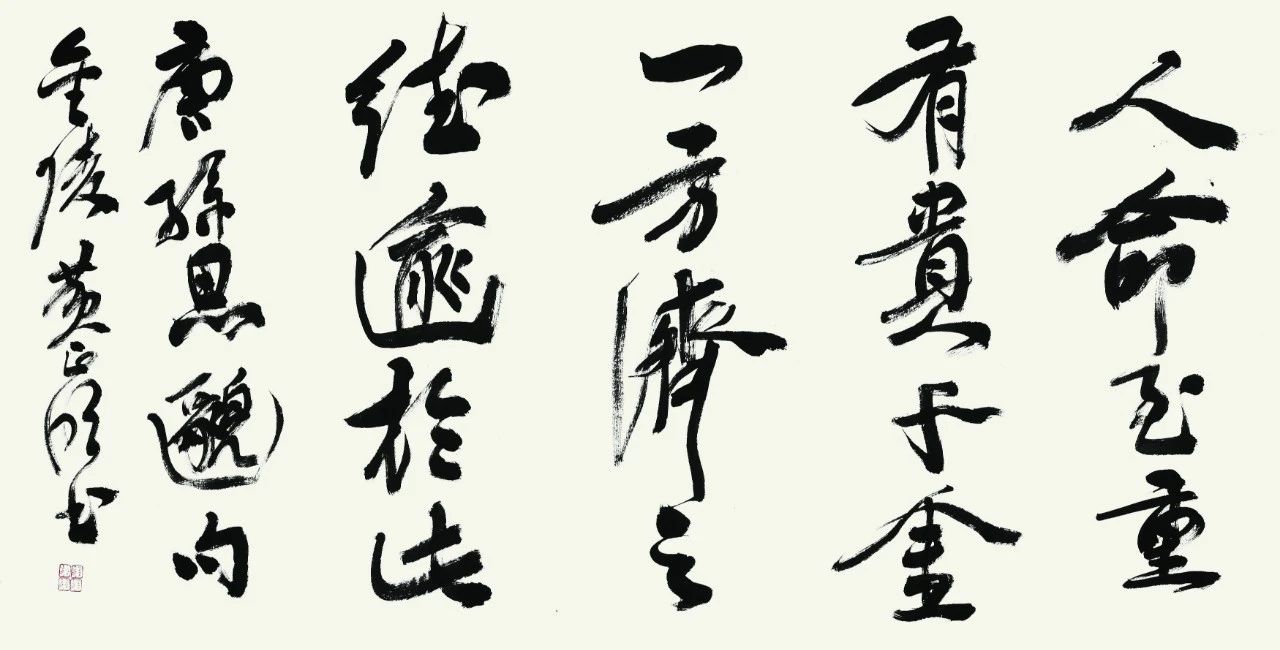 人命至重
有貴千金
一方濟之
德逾於此
唐孫思邈句
金陵黄正书